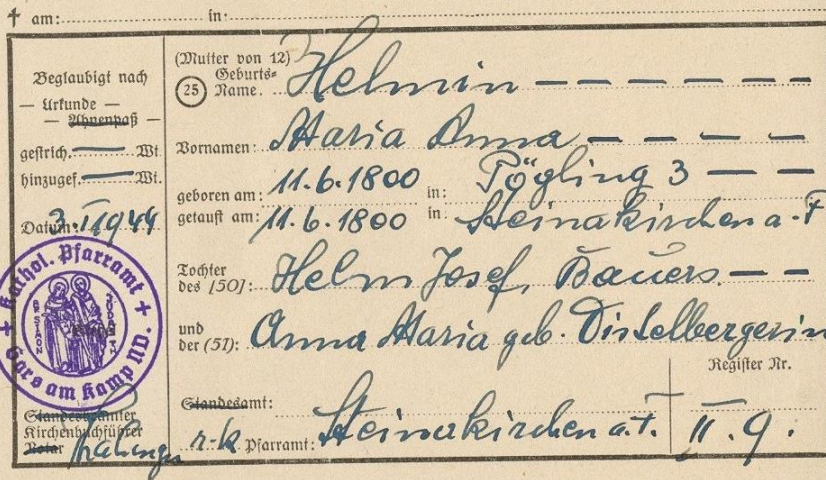 † am: in:
Beglaubigt nach
— Urkunde —
— Ahnenpaß —
gestrich. — Wt.
hinzugef. — Wt.
Datum: 3.I.1944
Kathol. Pfarramt
Gars am Kamp ND.
Standesbeamter
Kirchenbuchführer
Notar
(Mutter von 12)
(25) Geburts=Name. Helmin — — — — — —
Vornamen: Maria Anna — — — —
geboren am: 11.6.1800 in: Pögling 3 — —
getauft am: 11.6.1800 in Steinakirchen a. F
Tochter des [50]: Helm Josef, Bauers — —
und der (51): Anna Maria geb. Distelbergerin
Register Nr.
Standesamt:
r.k Pfarramt: Steinakirchen a. F. II. 9.